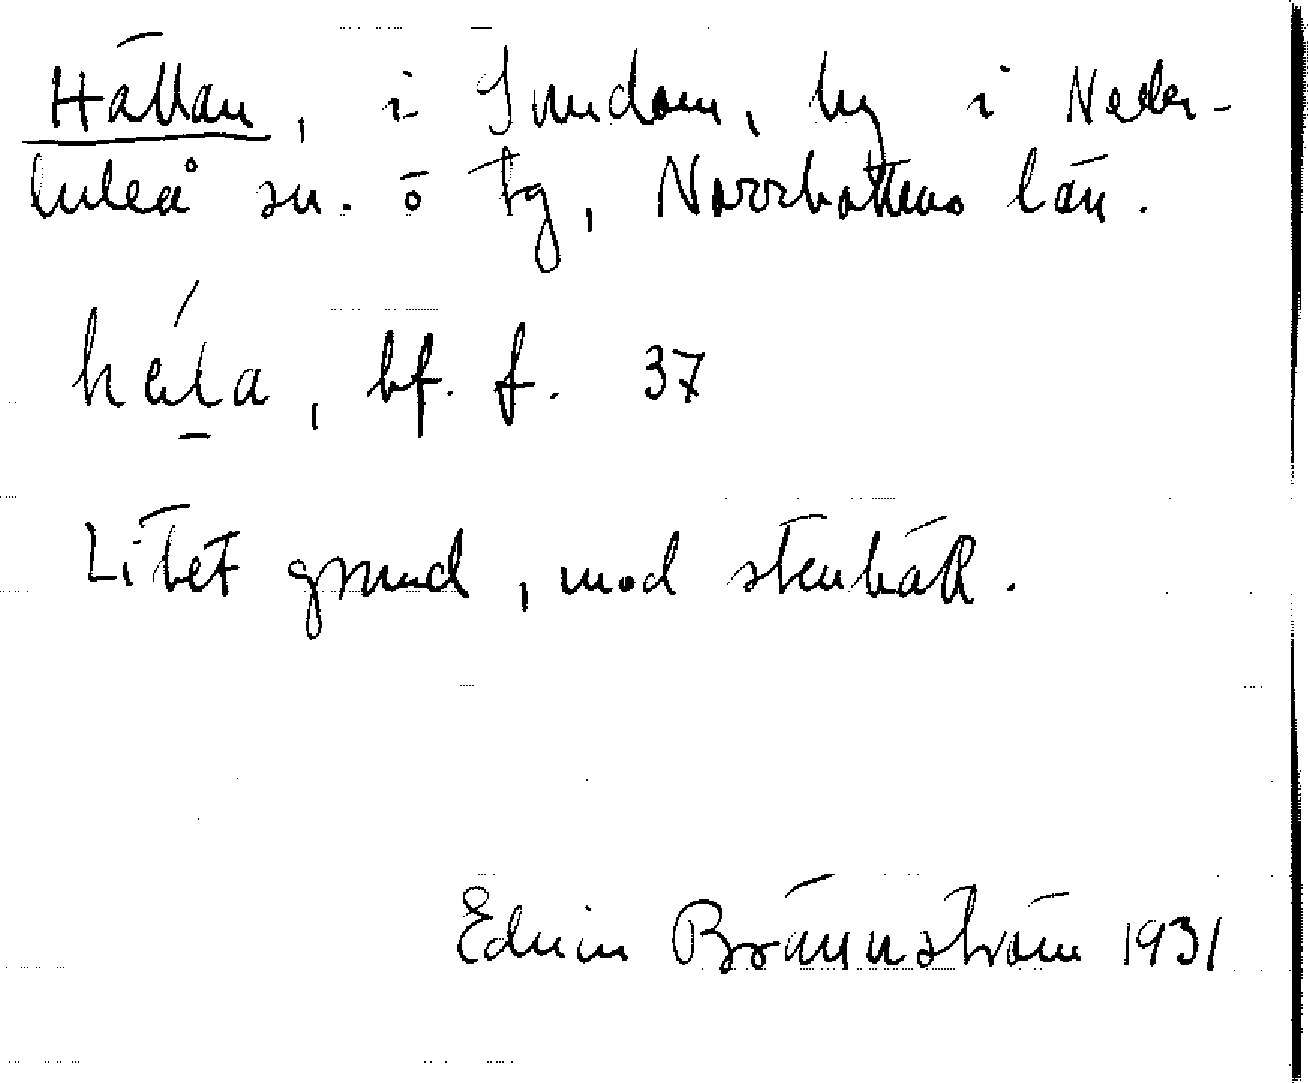 Hällan, i Sundom, by i Neder-
luleå sn. ö tg, Norrbottens län.
hęla, bf. f. 37
Litet grund, med stenhäll.
Edvin Brännström 1931